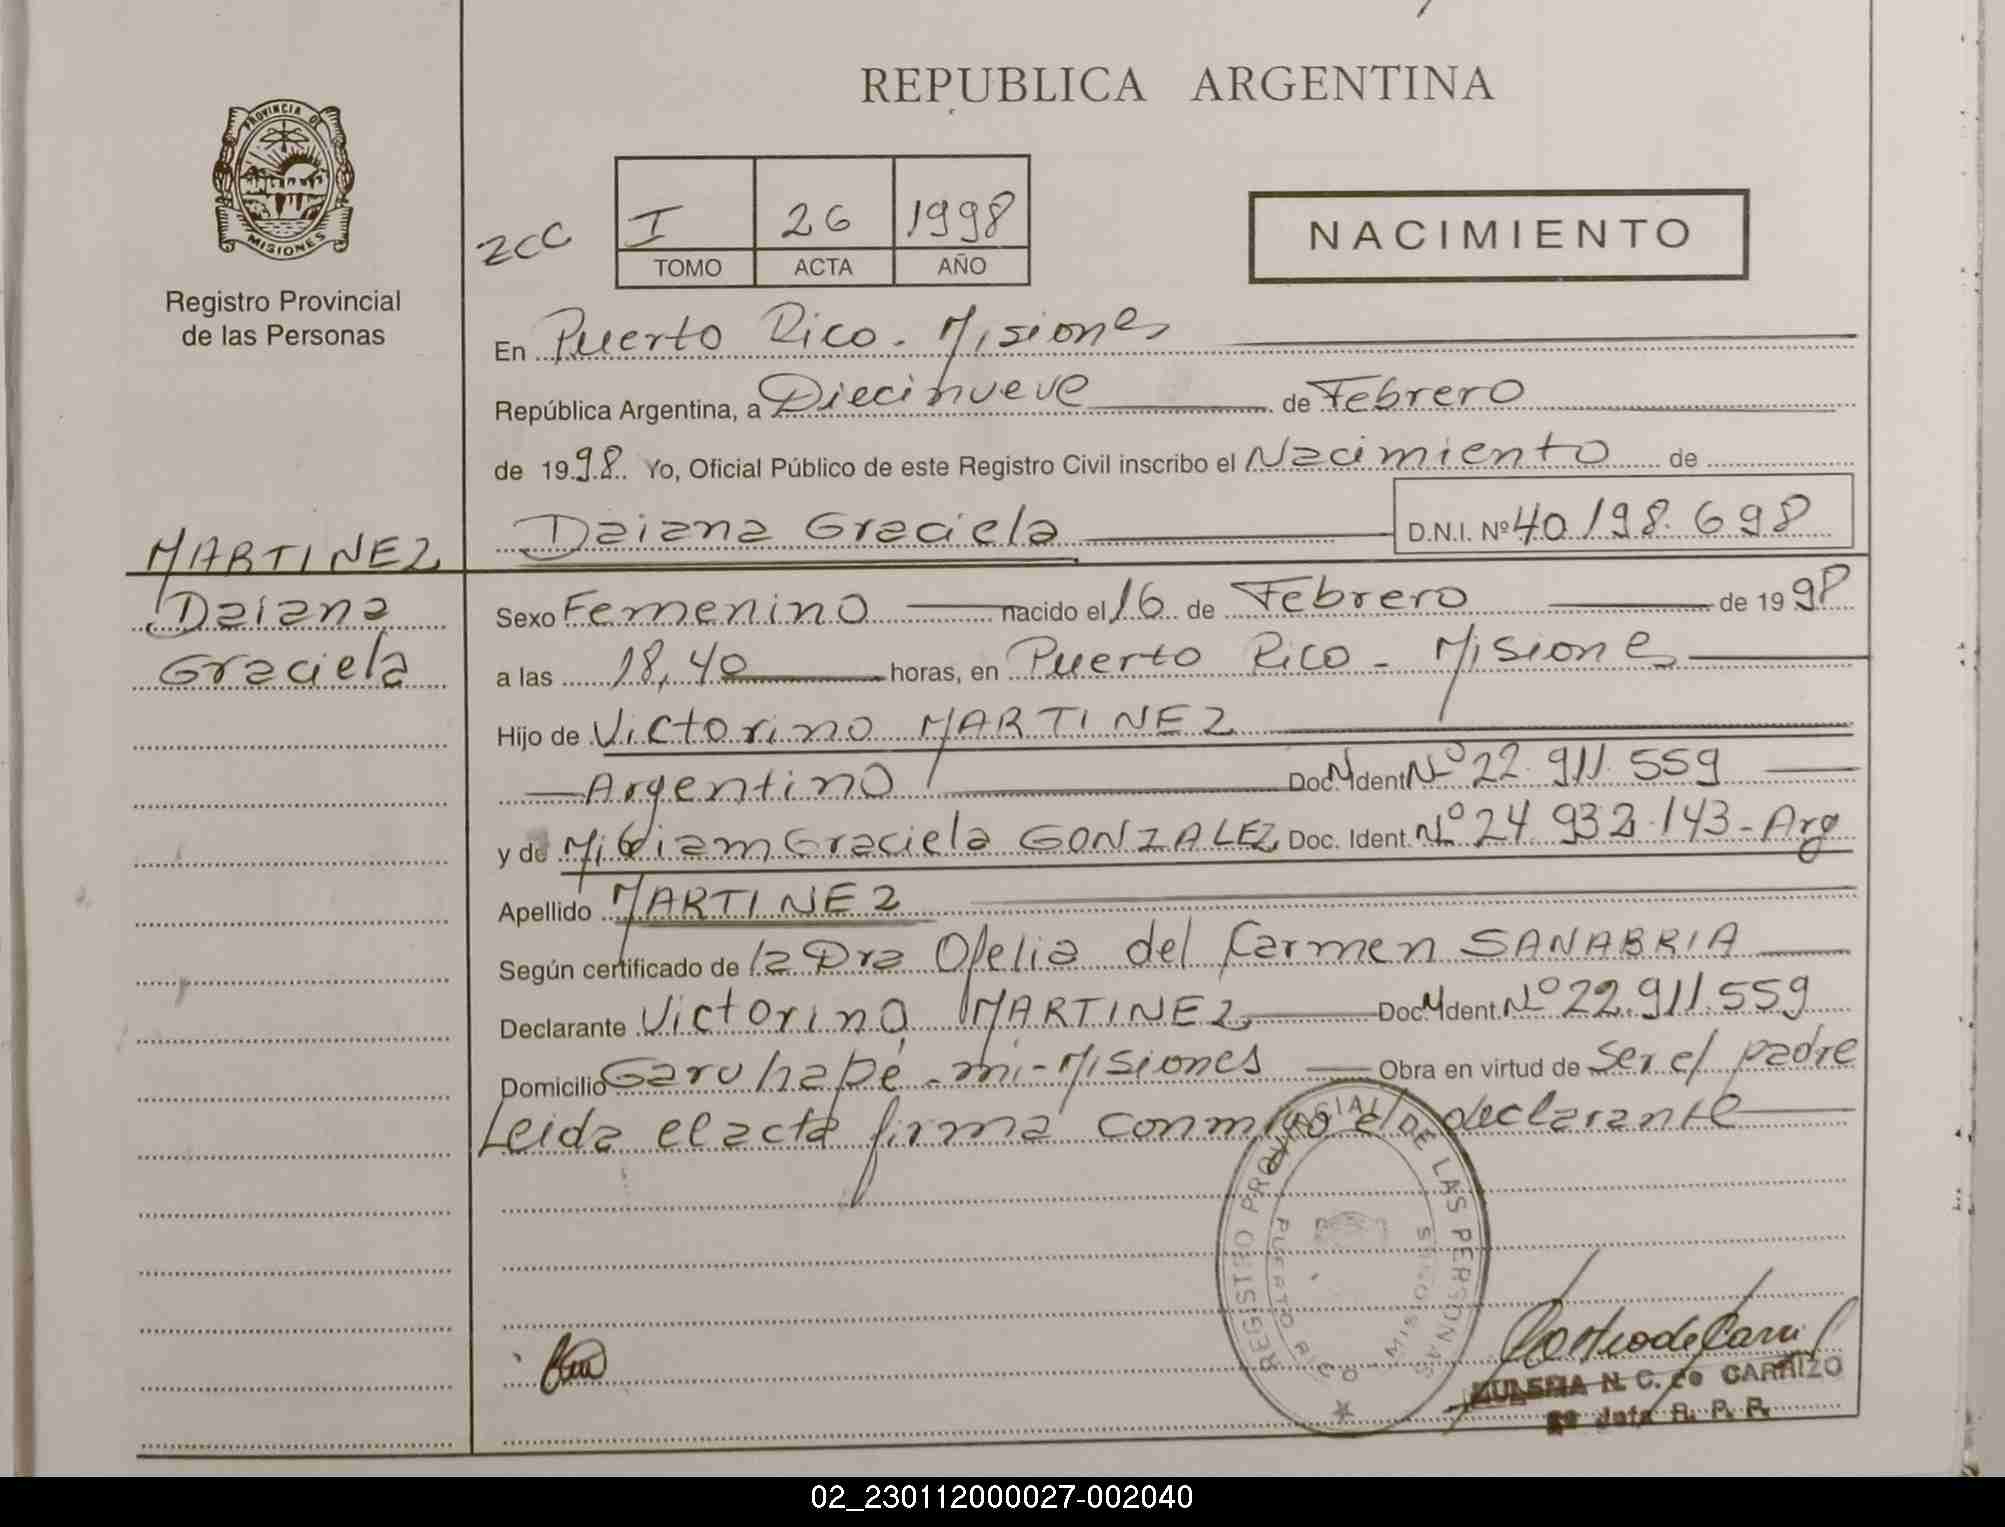 REPUBLICA ARGENTINA
PROVINCIA DE MISIONES
Registro Provincial
de las Personas
2CC
I 26 1998
TOMO ACTA AÑO
NACIMIENTO
En Puerto Rico - Misiones
República Argentina, a Diecinueve de Febrero
de 1998. Yo, Oficial Público de este Registro Civil inscribo el Nacimiento de
Daiana Graciela D.N.I. Nº 40.198.698
MARTINEZ
Daiana
Graciela
Sexo Femenino nacido el 16 de Febrero de 1998
a las 18,40 horas, en Puerto Rico - Misiones
Hijo de Victorino MARTINEZ
Argentino Doc. Ident Nº 22.911.559
y de Graciela GONZALEZ Doc. Ident. Nº 24.932.143 - Arg
Apellido MARTINEZ
Según certificado de la Dra Ofelia del Carmen SANABRIA
Declarante Victorino MARTINEZ Doc. Ident. Nº 22.911.559
Domicilio Garuhapé - mi - Misiones Obra en virtud de ser el padre
Leida el acta firma conmigo el declarante
REGISTRO PROVINCIAL DE LAS PERSONAS
PUERTO RICO MISIONES
N. C. de CARRIZO
Jefa R. P. P.
02_230112000027-002040